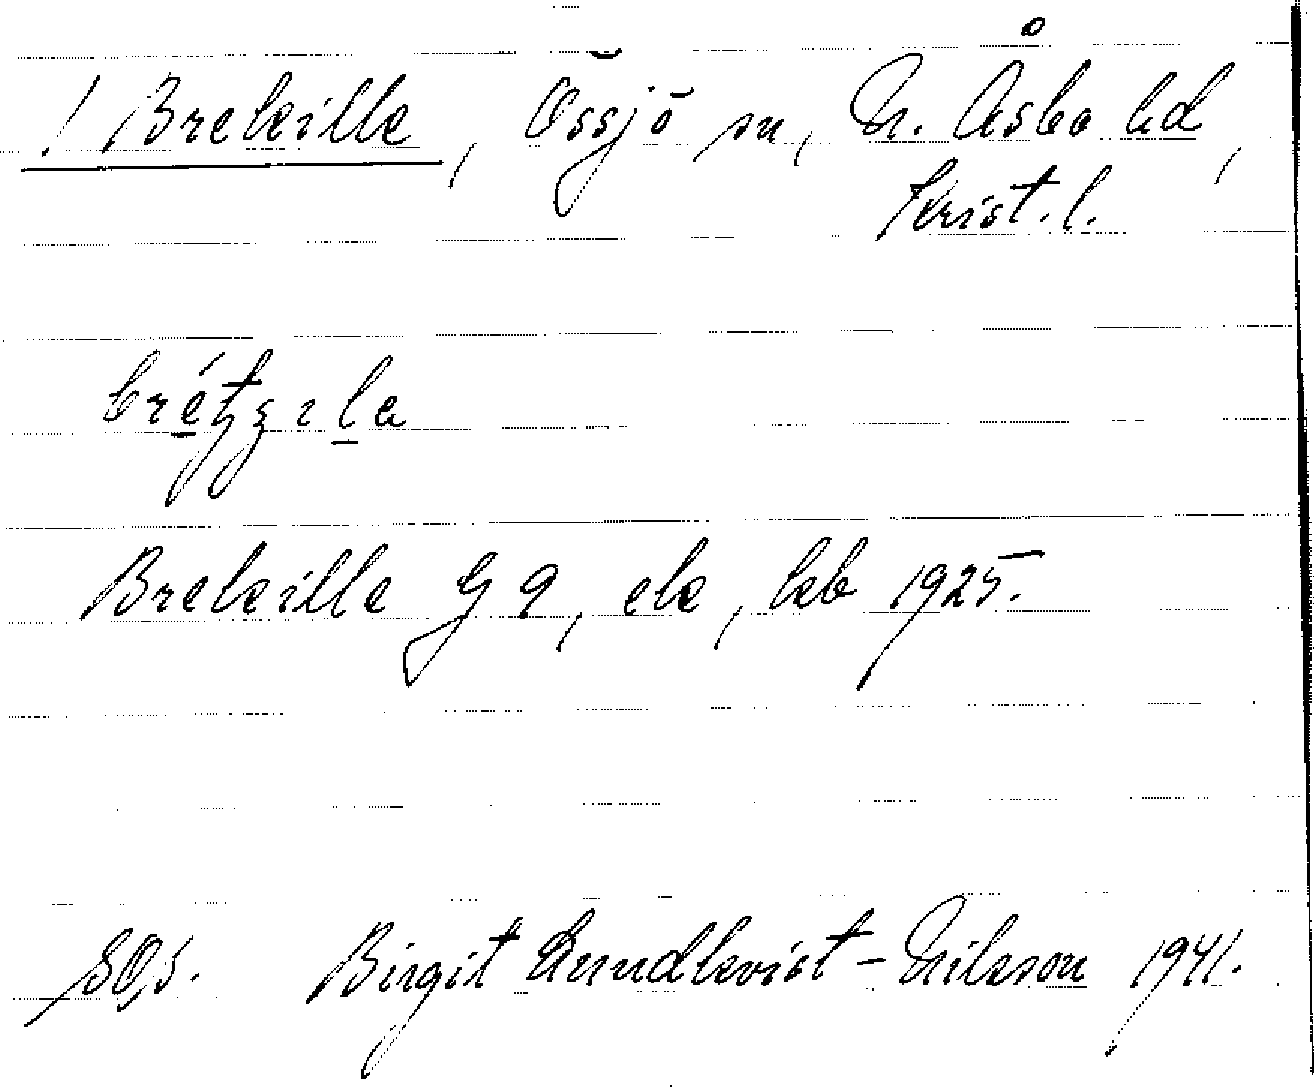 ! Brekille, Össjö sn, N. Åsbo hd,
Krist. l.
Brekille G 9, ek, kb 1925.
SOS. Birgit Lundkvist-Nilsson 1941.